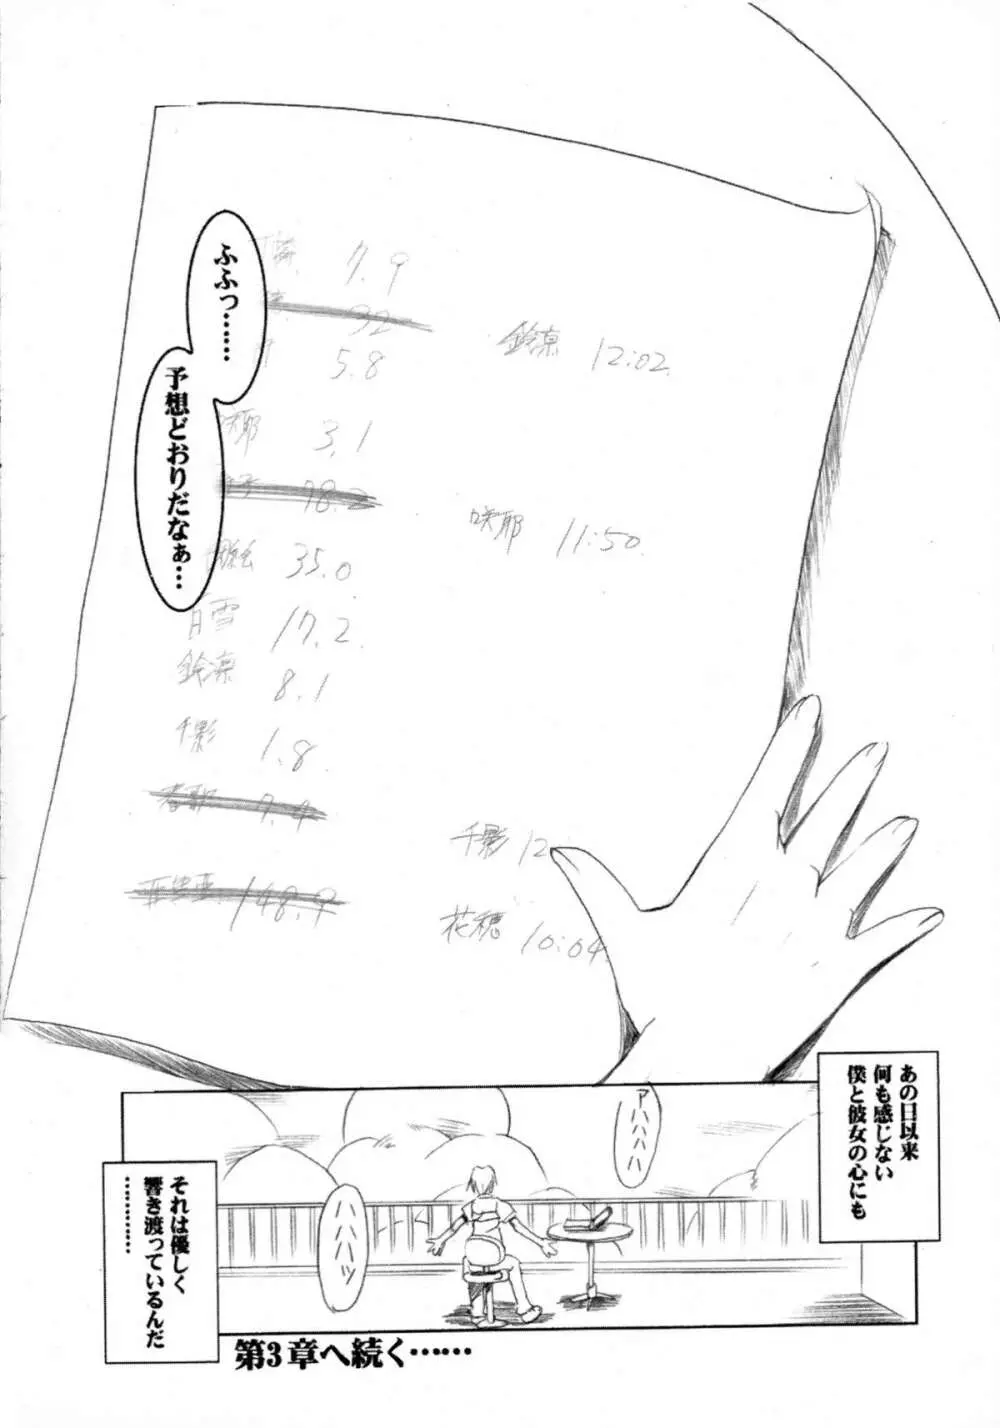 ふふっ……
予想どおりだなぁ…
7.9
92
5.8
咲耶 3.1
78.2
35.0
17.2
鈴凛 8.1
千影 1.8
春歌 7.4
亞里亞 148.9
鈴凛 12:02
咲耶 11:50
千影 12
花穂 10:04
あの日以来
何も感じない
僕と彼女の心にも
アハハハハ
ハハハッ
それは優しく
響き渡っているんだ
…………
第3章へ続く……